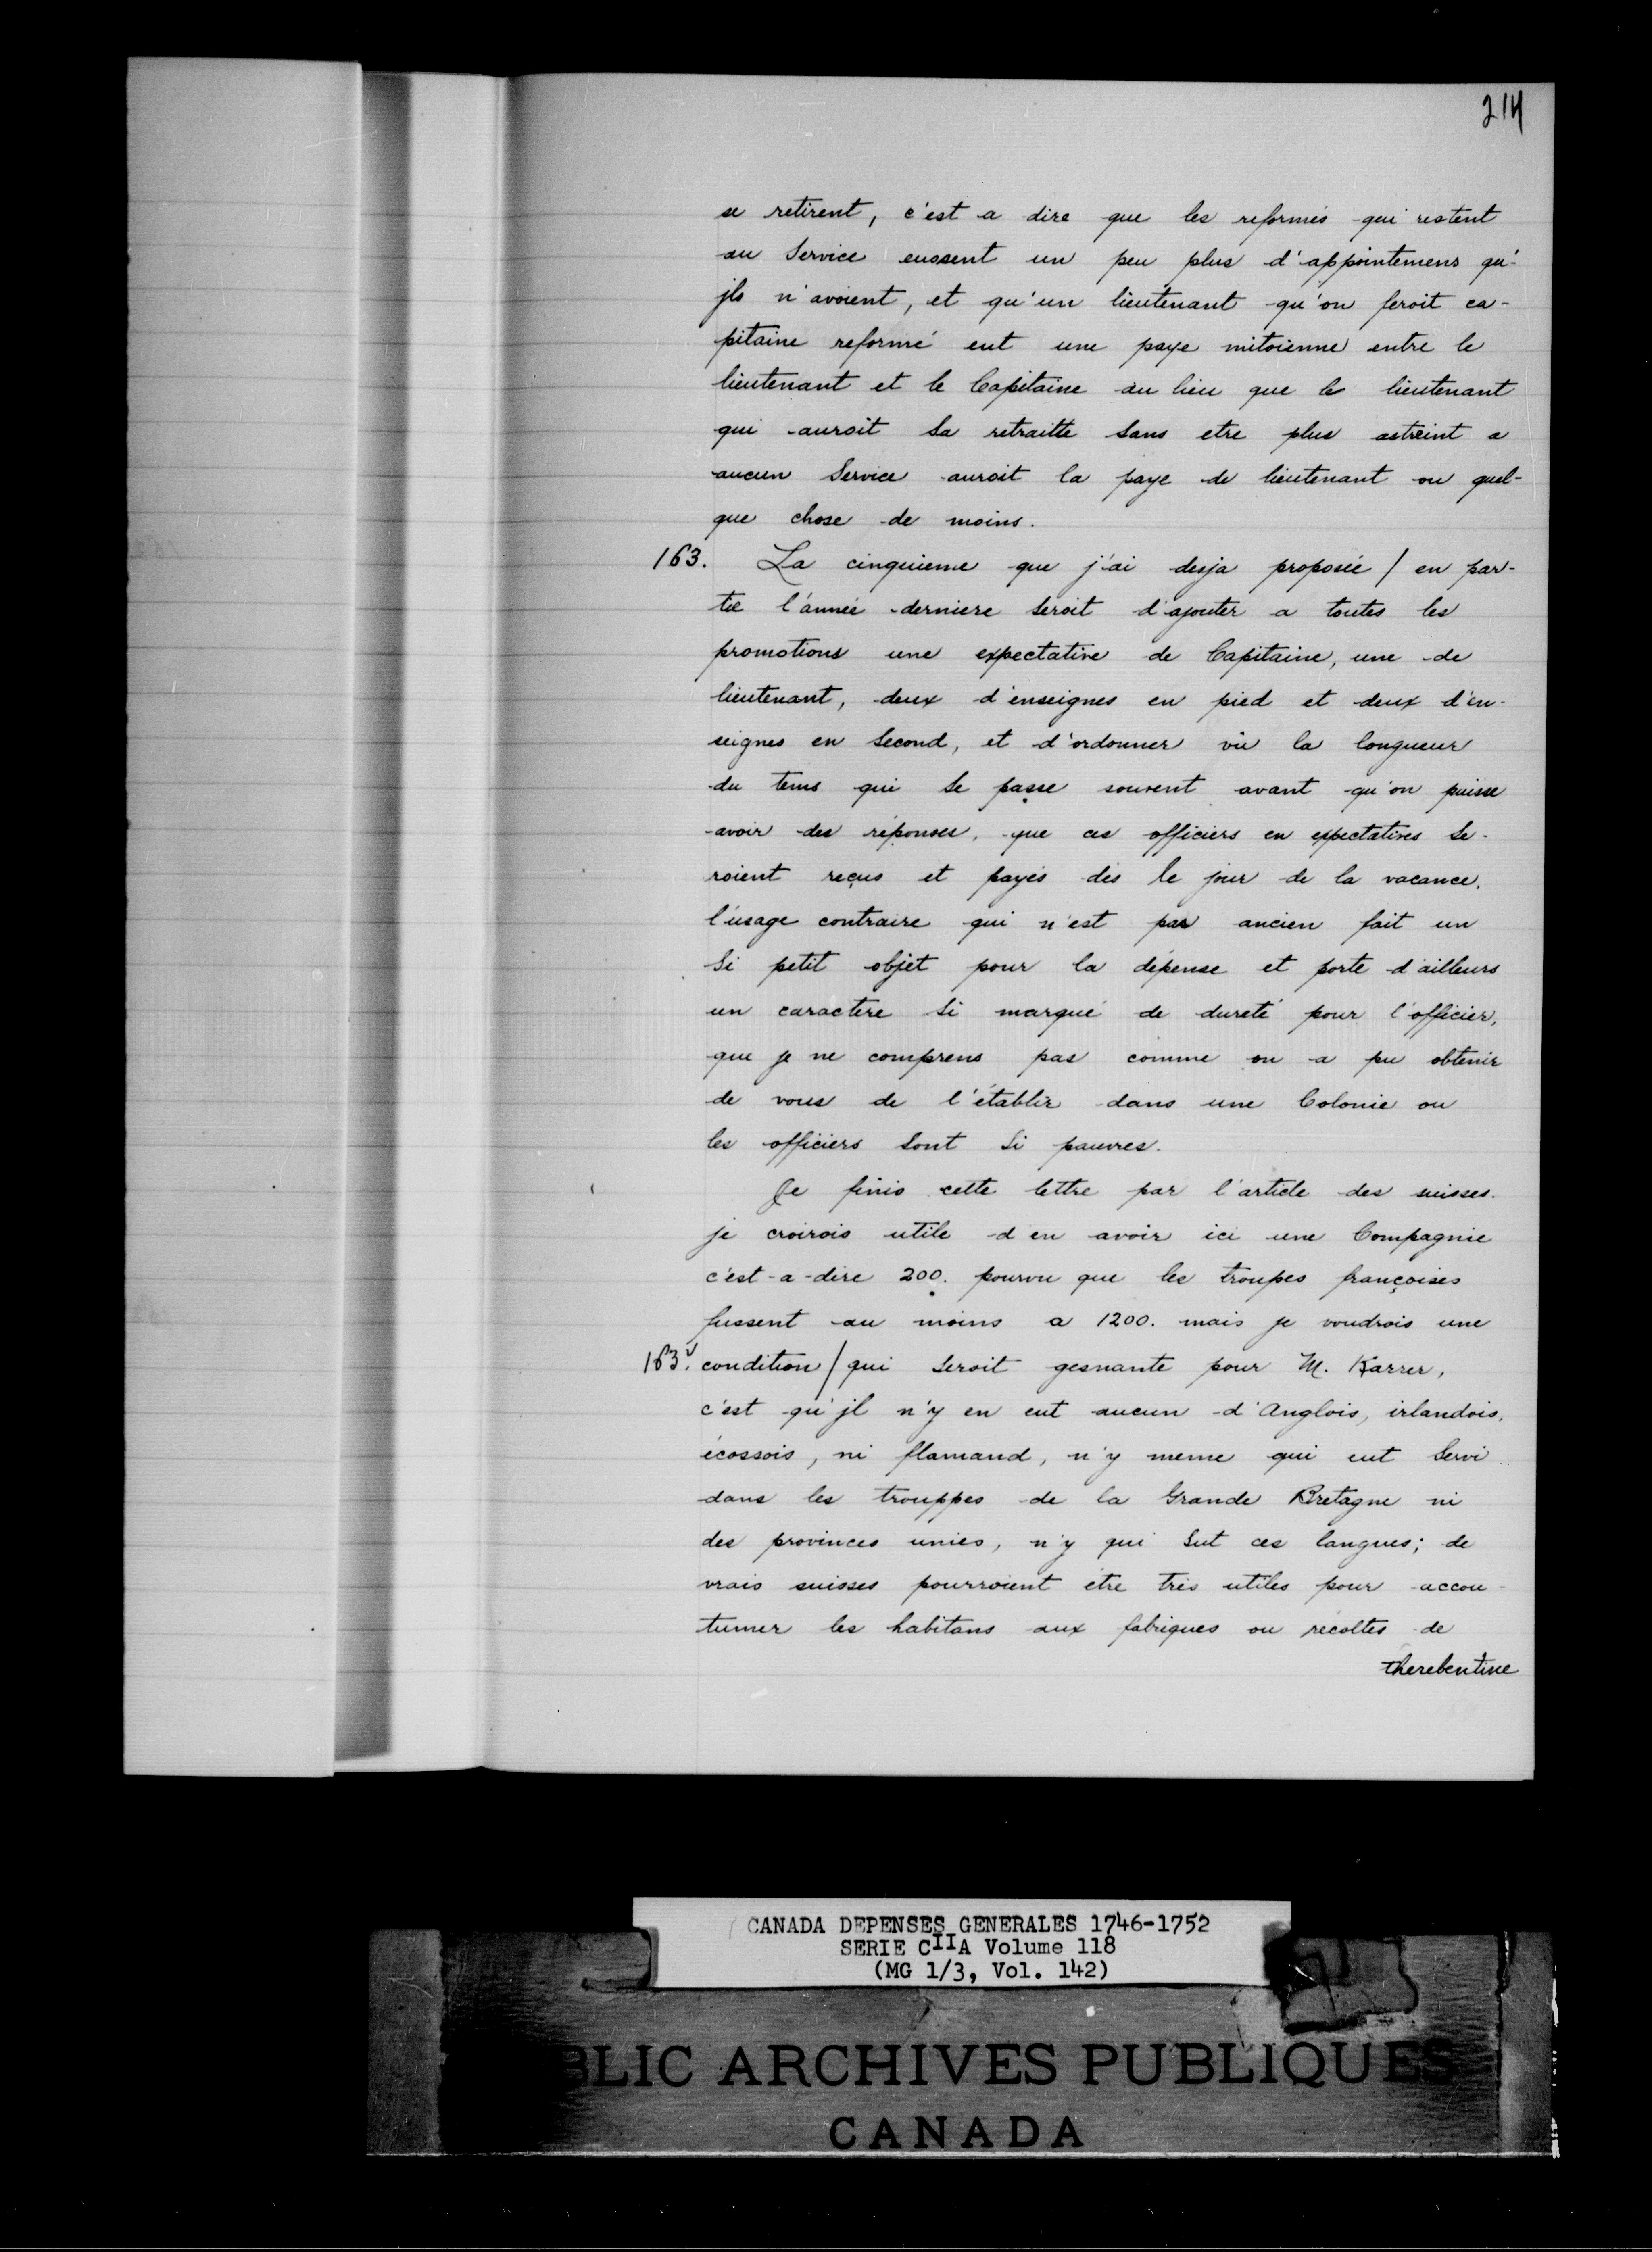 214
se retirent, c'est a dire que les reformés qui restent
au Service eussent un peu plus d'appointemens qu'-
jls n'avoient, et qu'un lieutenant qu'on feroit ca-
pitaine reformé eut une paye mitoienne entre le
lieutenant et le Capitaine au lieu que le lieutenant
qui auroit sa retraitte sans etre plus astreint a
aucun Service auroit la paye de lieutenant ou quel-
que chose de moins.
163. La cinquieme que j'ai desja proposée / en par-
tie l'année derniere seroit d'ajouter a toutes les
promotions une expectative de Capitaine, une de
lieutenant, deux d'enseignes en pied et deux d'en-
seignes en Second, et d'ordonner vû la longueur
du tems qui se passe souvent avant qu'on puisse
avoir des réponses, que ces officiers en expectatives se-
roient reçus et payés dès le jour de la vacance.
l'usage contraire qui n'est pas ancien fait un
si petit objet pour la dépense et porte d'ailleurs
un caractere si marqué de dureté pour l'officier,
que je ne comprens pas comme on a pu obtenir
de vous de l'établir dans une Colonie ou
les officiers sont si pauvres.
Je finis cette lettre par l'article des suisses.
je croirois utile d'en avoir ici une Compagnie
c'est-a-dire 200. pourvu que les troupes françoises
fussent au moins a 1200. mais je voudrois une
163v. condition / qui seroit gesnante pour M. Karrer,
c'est qu'jl n'y en eut aucun d'Anglois, irlandois,
écossois, ni flamand, n'y meme qui eut servi
dans les trouppes de la Grande Bretagne ni
des provinces unies, n'y qui sut ces langues; de
vrais suisses pourroient être très utiles pour accou-
tumer les habitans aux fabriques ou récoltes de
therebentine
CANADA DEPENSES GENERALES 1746-1752
SERIE CIIA Volume 118
(MG 1/3, Vol. 142)
BLIC ARCHIVES PUBLIQUES
CANADA